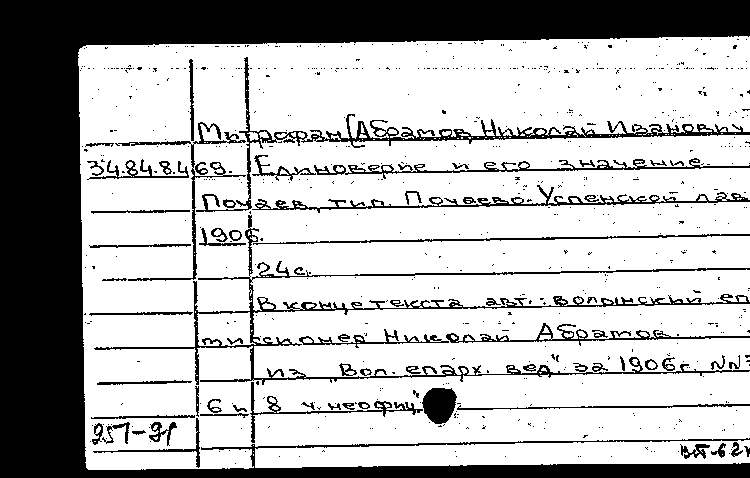 Митрофан [Абрамов, Николай Иванович
34.84.8.469. Единоверие и его значение.
Почаев, тип. Почаево-Успенской лав
1906.
24с.
В конце текста авт.: волынский еп
миссионер Николай Абрамов.
"из "Вол. епарх. вед" за 1906г, NN
6 и 8 ч. неофиц"
257-91